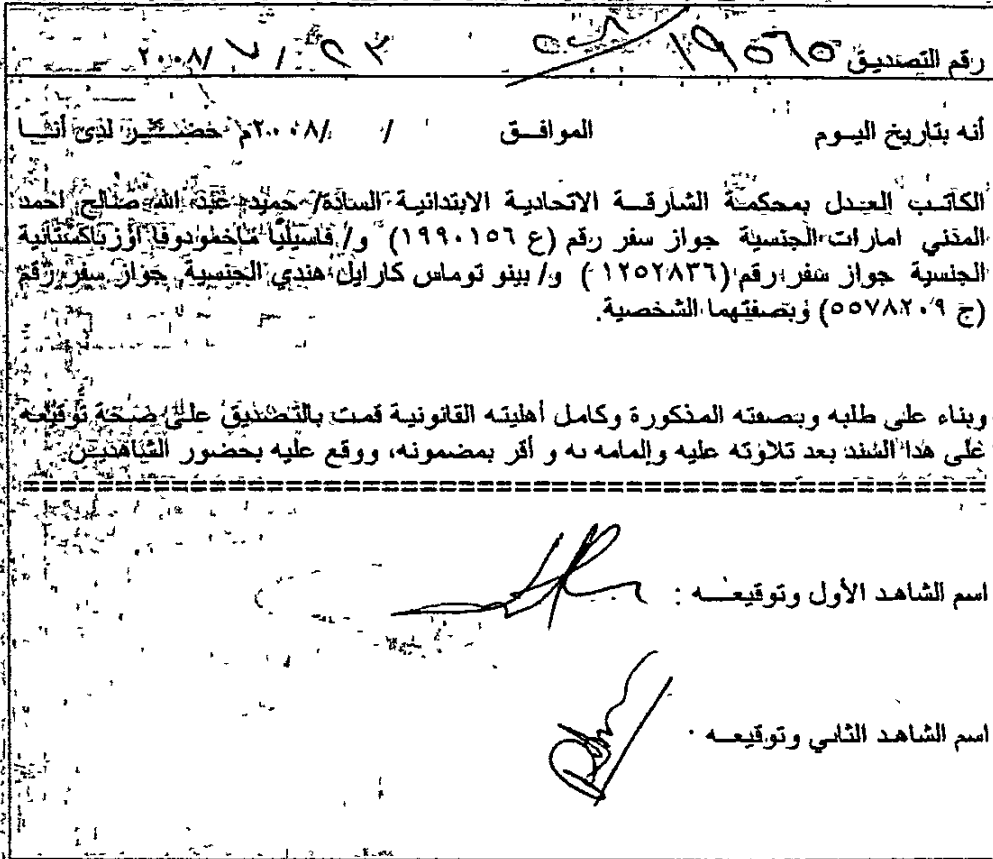 رقم التصديق ١٩٥٦٥ ٢٣ / ٧ /٢٠٠٨
أنه بتاريخ اليوم الموافق / /٢٠٠٨م حضر لدى أنا
الكاتب العدل بمحكمة الشارقة الاتحادية الابتدائية السادة/ حميد عبد الله صالح احمد
المدني امارات الجنسية جواز سفر رقم (ع ١٩٩٠١٥٦) و/ فاسيليا ماخمودوفا أوزباكستانية
الجنسية جواز سفر رقم (١٢٥٢٨٣٦) و/ بينو توماس كارايل هندي الجنسية جواز سفر رقم
(ج ٥٥٧٨٢٠٩) وبصفتهما الشخصية.
وبناء على طلبه وبصفته المذكورة وكامل أهليته القانونية قمت بالتصديق على صحة توقيعه
على هذا السند بعد تلاوته عليه وإلمامه به و أقر بمضمونه، ووقع عليه بحضور الشاهدين
اسم الشاهد الأول وتوقيعه :
اسم الشاهد الثاني وتوقيعه .